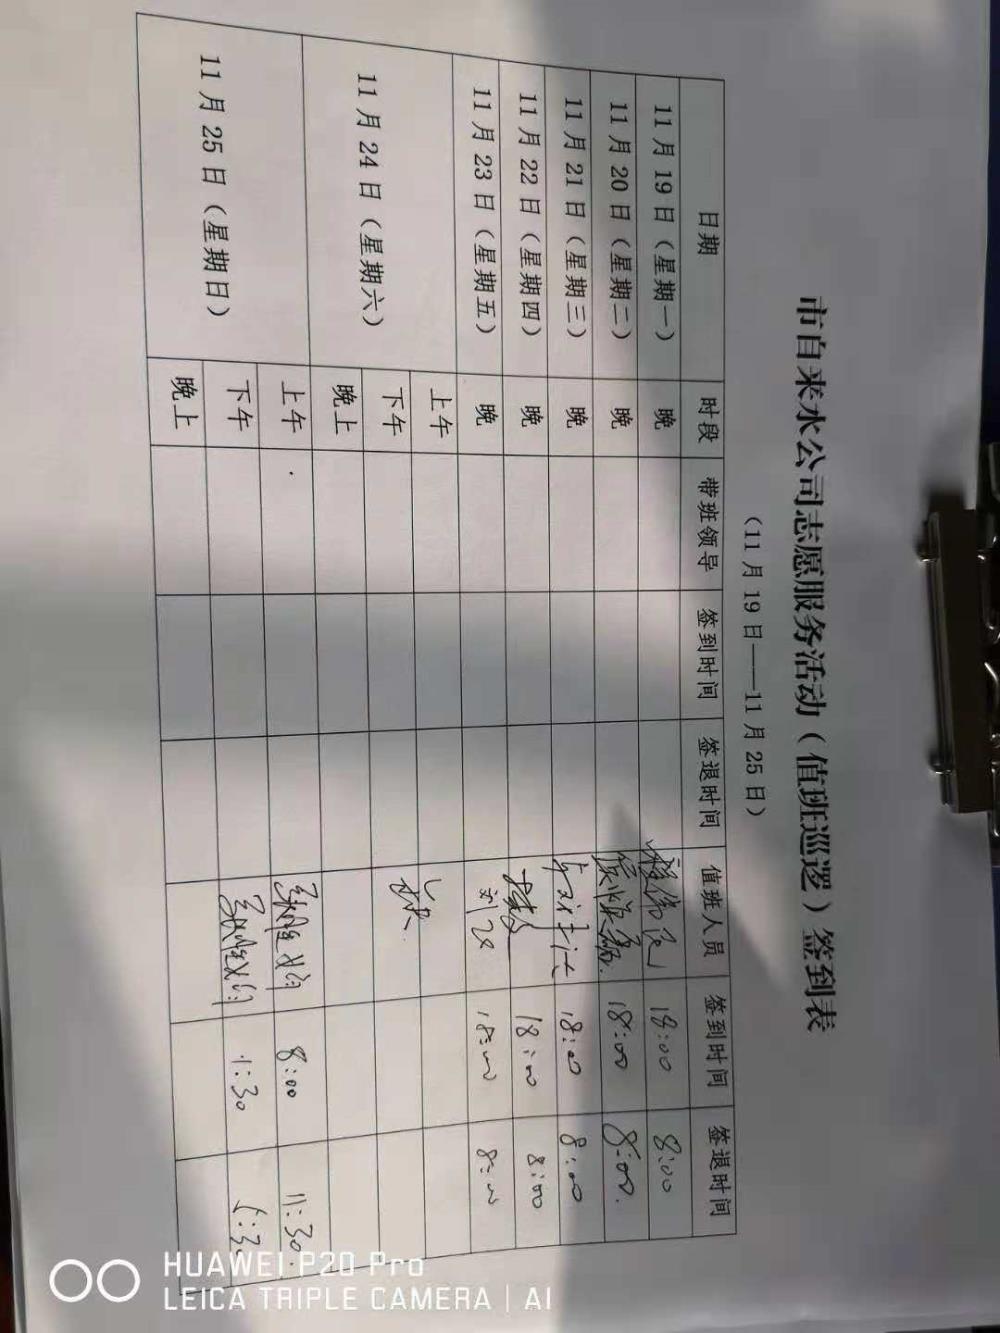 市自来水公司志愿服务活动（值班巡逻）签到表
（11月19日——11月25日）
日期 时段 带班领导 签到时间 签退时间 值班人员 签到时间 签退时间
11月19日（星期一） 晚 18:00 8:00
11月20日（星期二） 晚 18:00 8:00.
11月21日（星期三） 晚 18:00 8:00
11月22日（星期四） 晚 18:00 8:00
11月23日（星期五） 晚 18:00 8:00
11月24日（星期六） 上午
下午
晚上
11月25日（星期日） 上午 8:00 11:30
下午 1:30
晚上
HUAWEI P20 Pro
LEICA TRIPLE CAMERA | AI